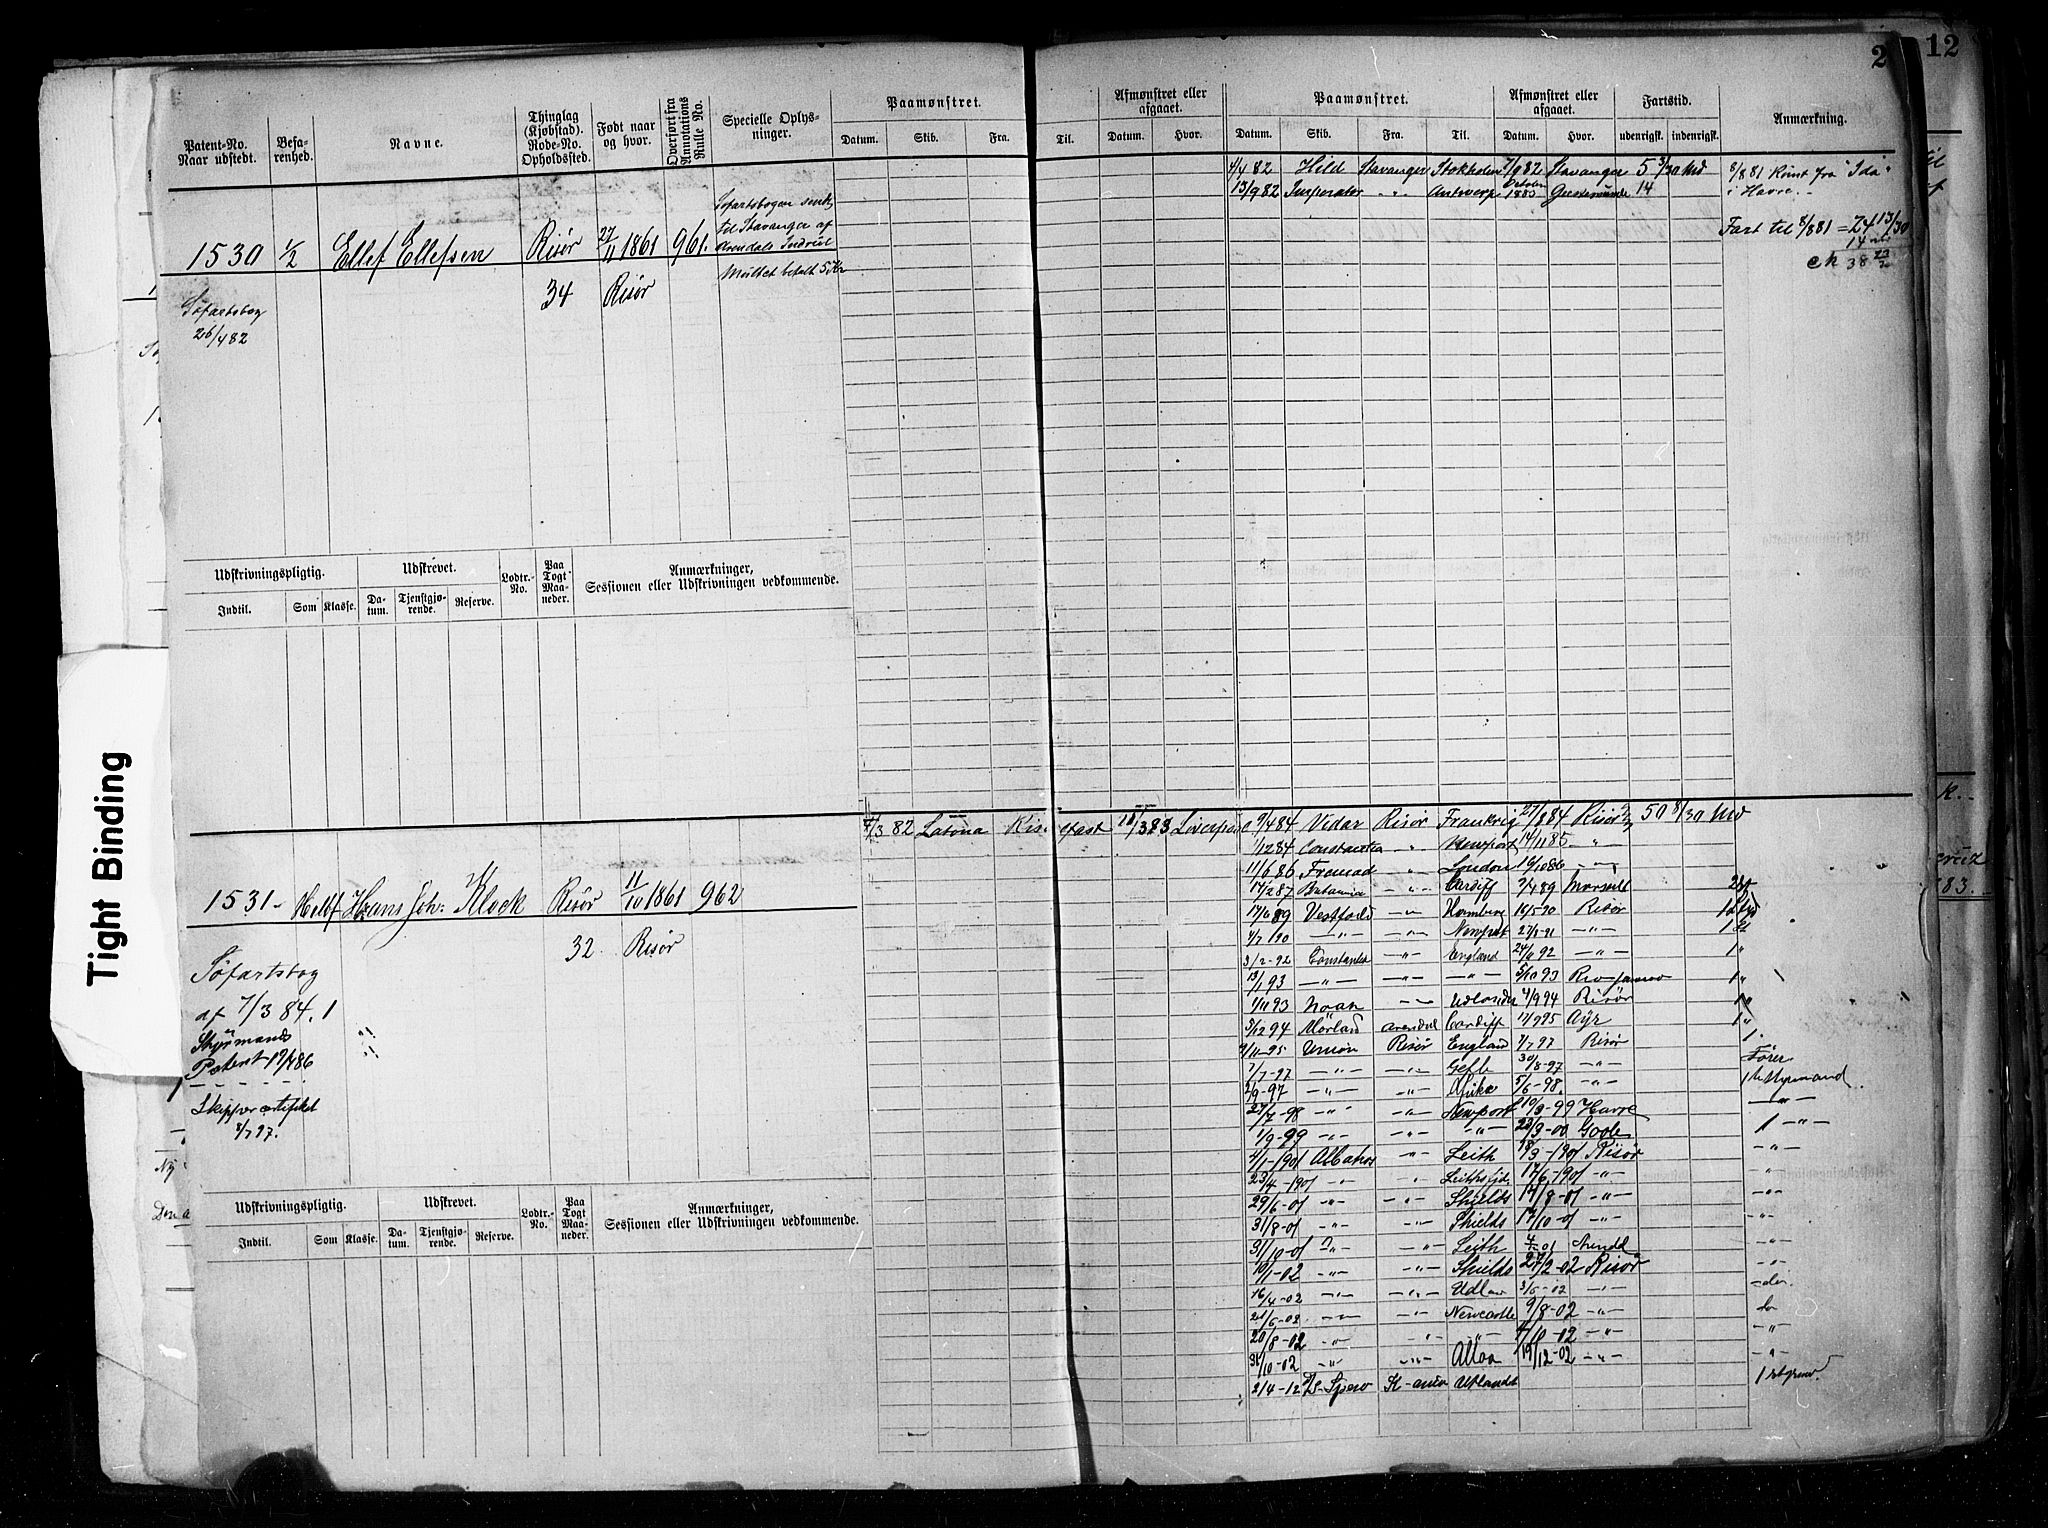 2
12
Patent-No. Naar udstedt.
Befarenhed.
Navne.
Thinglag (Kjøbstad). Rode-No. Opholdssted.
Født naar og hvor.
Overført fra Annotations Rulle No.
Specielle Oplysninger.
Paamønstret.
Datum. Skib. Fra. Til.
Afmønstret eller afgaaet.
Datum. Hvor.
Paamønstret.
Datum. Skib. Fra. Til.
Afmønstret eller afgaaet.
Datum. Hvor.
Fartstid.
udenrigsk. indenrigsk.
Anmærkning.
4/4 82 Hild Stavanger Stokholm 7/9 82 Stavanger 5 3/30 Md
13/9 82 Imperator " Antwerp October 1883 Geestemünde 14
8/8 81 Rømt fra "Ida"
i Havre.
Fart til 8/8 81 = 24 13/30
14
38
1530 1/2 Ellef Ellefsen Risør 27/11 1861 961.
Søfartsbogen sendt
til Stavanger af
Arendals Indrul
Mulkt betalt 5 Kr
34 Risør
Søfartsbog
26/4 82
Udskrivningspligtig. Udskrevet. Lodtr.-No. Paa Togt Maaneder. Anmærkninger, Sessionen eller Udskrivningen vedkommende.
Indtil. Som Klasse. Datum. Tjenstgjørende. Reserve.
Tight Binding
1531 Helbf Hans Joh: Klock Risør 11/10 1861 962
32. Risør
Søfartsbog
af 7/3 84.
Styrmands
Patent 19/4 86
Skippercertifikat
8/7 97.
/3 82 Latona Ris. 18/3 83 Liverpool 9/4 84 Vidar Risør Frankrig 27/8 84 Risør 50 8/30 Md
1/12 84 Constantia " Newport 14/11 85 "
11/6 86 Fremad " London 16/10 86 "
17/2 87 Britannia " Cardiff 7/4 89 Marseille
17/6 89 Vestfold " Hamburg 16/5-90 Risør
4/7 90 " " Newport 27/8-91 "
3/2-92 Constantia " England 24/11 92 "
13/1 93 " " " 5/10 93 Rio Janeiro
1/11 93 Norah " Udlandet 4/9 94 Risør
5/12 94 Mørland Arendal Cardiff 17/9 95 Ayr
9/11-95 Union Risør England 7/7 97 Risør
7/7-97 " " Gefle 30/8-97 " Fører
2/9-97 " " Afrika 5/6-98. " 1 Styrmand
27/7-98 " " Newport 10/3-99 Havre "
1/9-99 " " " 22/3-00 Goole 1 "
2/1-1901 Albatros " Leith 18/3-1901 Risør "
23/4-1901 " " Leith 17/6-1901 " "
29/6-01 " " Shields 17/8-01 " "
31/8-01 " " Shields 17/10-01 " "
31/10-01 " " Leith 01 Arendal "
10/1-02 " " Shields 27/2-02 Risør "
16/4-02 " " Udlan 3/6-02 " do
21/6-02 " " Newcastle 9/8-02 " do
20/8-02 " " " 7/10-02 " "
31/10-02 " " Alloa 19/12-02 " "
2/4-12 Spero K-ania Utlandet
Udskrivningspligtig. Udskrevet. Lodtr.-No. Paa Togt Maaneder. Anmærkninger, Sessionen eller Udskrivningen vedkommende.
Indtil. Som Klasse. Datum. Tjenstgjørende. Reserve.